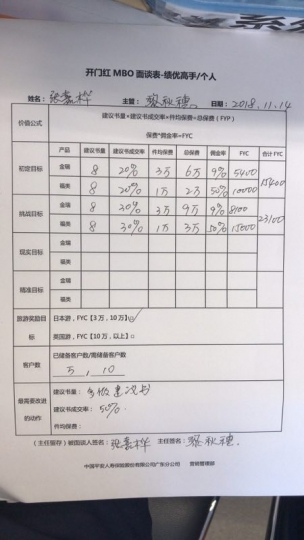 开门红 MBO 面谈表-绩优高手/个人
姓名: 张嘉桦 主管: 黎秋穗 日期: 2018.11.14
价值公式 建议书量×建议书成交率×件均保费=总保费(FYP)
保费*佣金率=FYC
产品 建议书量 建议书成交率 件均保费 总保费 佣金率 FYC 合计 FYC
初定目标 金瑞 8 20% 3万 6万 9% 5400 15400
福类 8 20% 1万 2万 50% 10000
挑战目标 金瑞 8 30% 3万 9万 9% 8100 23100
福类 8 30% 1万 3万 50% 15000
现实目标 金瑞
福类
精准目标 金瑞
福类
旅游奖励目标 日本游,FYC【3万,10万】☑
英国游,FYC【10万,以上】□
客户数 已储备客户数/需储备客户数
5,10
最需要改进的动作 建议书量: 多做建议书
建议书成交率: 50%
件均保费:
(主任留存)被面谈人签名: 张嘉桦 主任签名: 黎秋穗
中国平安人寿保险股份有限公司广东分公司 营销管理部